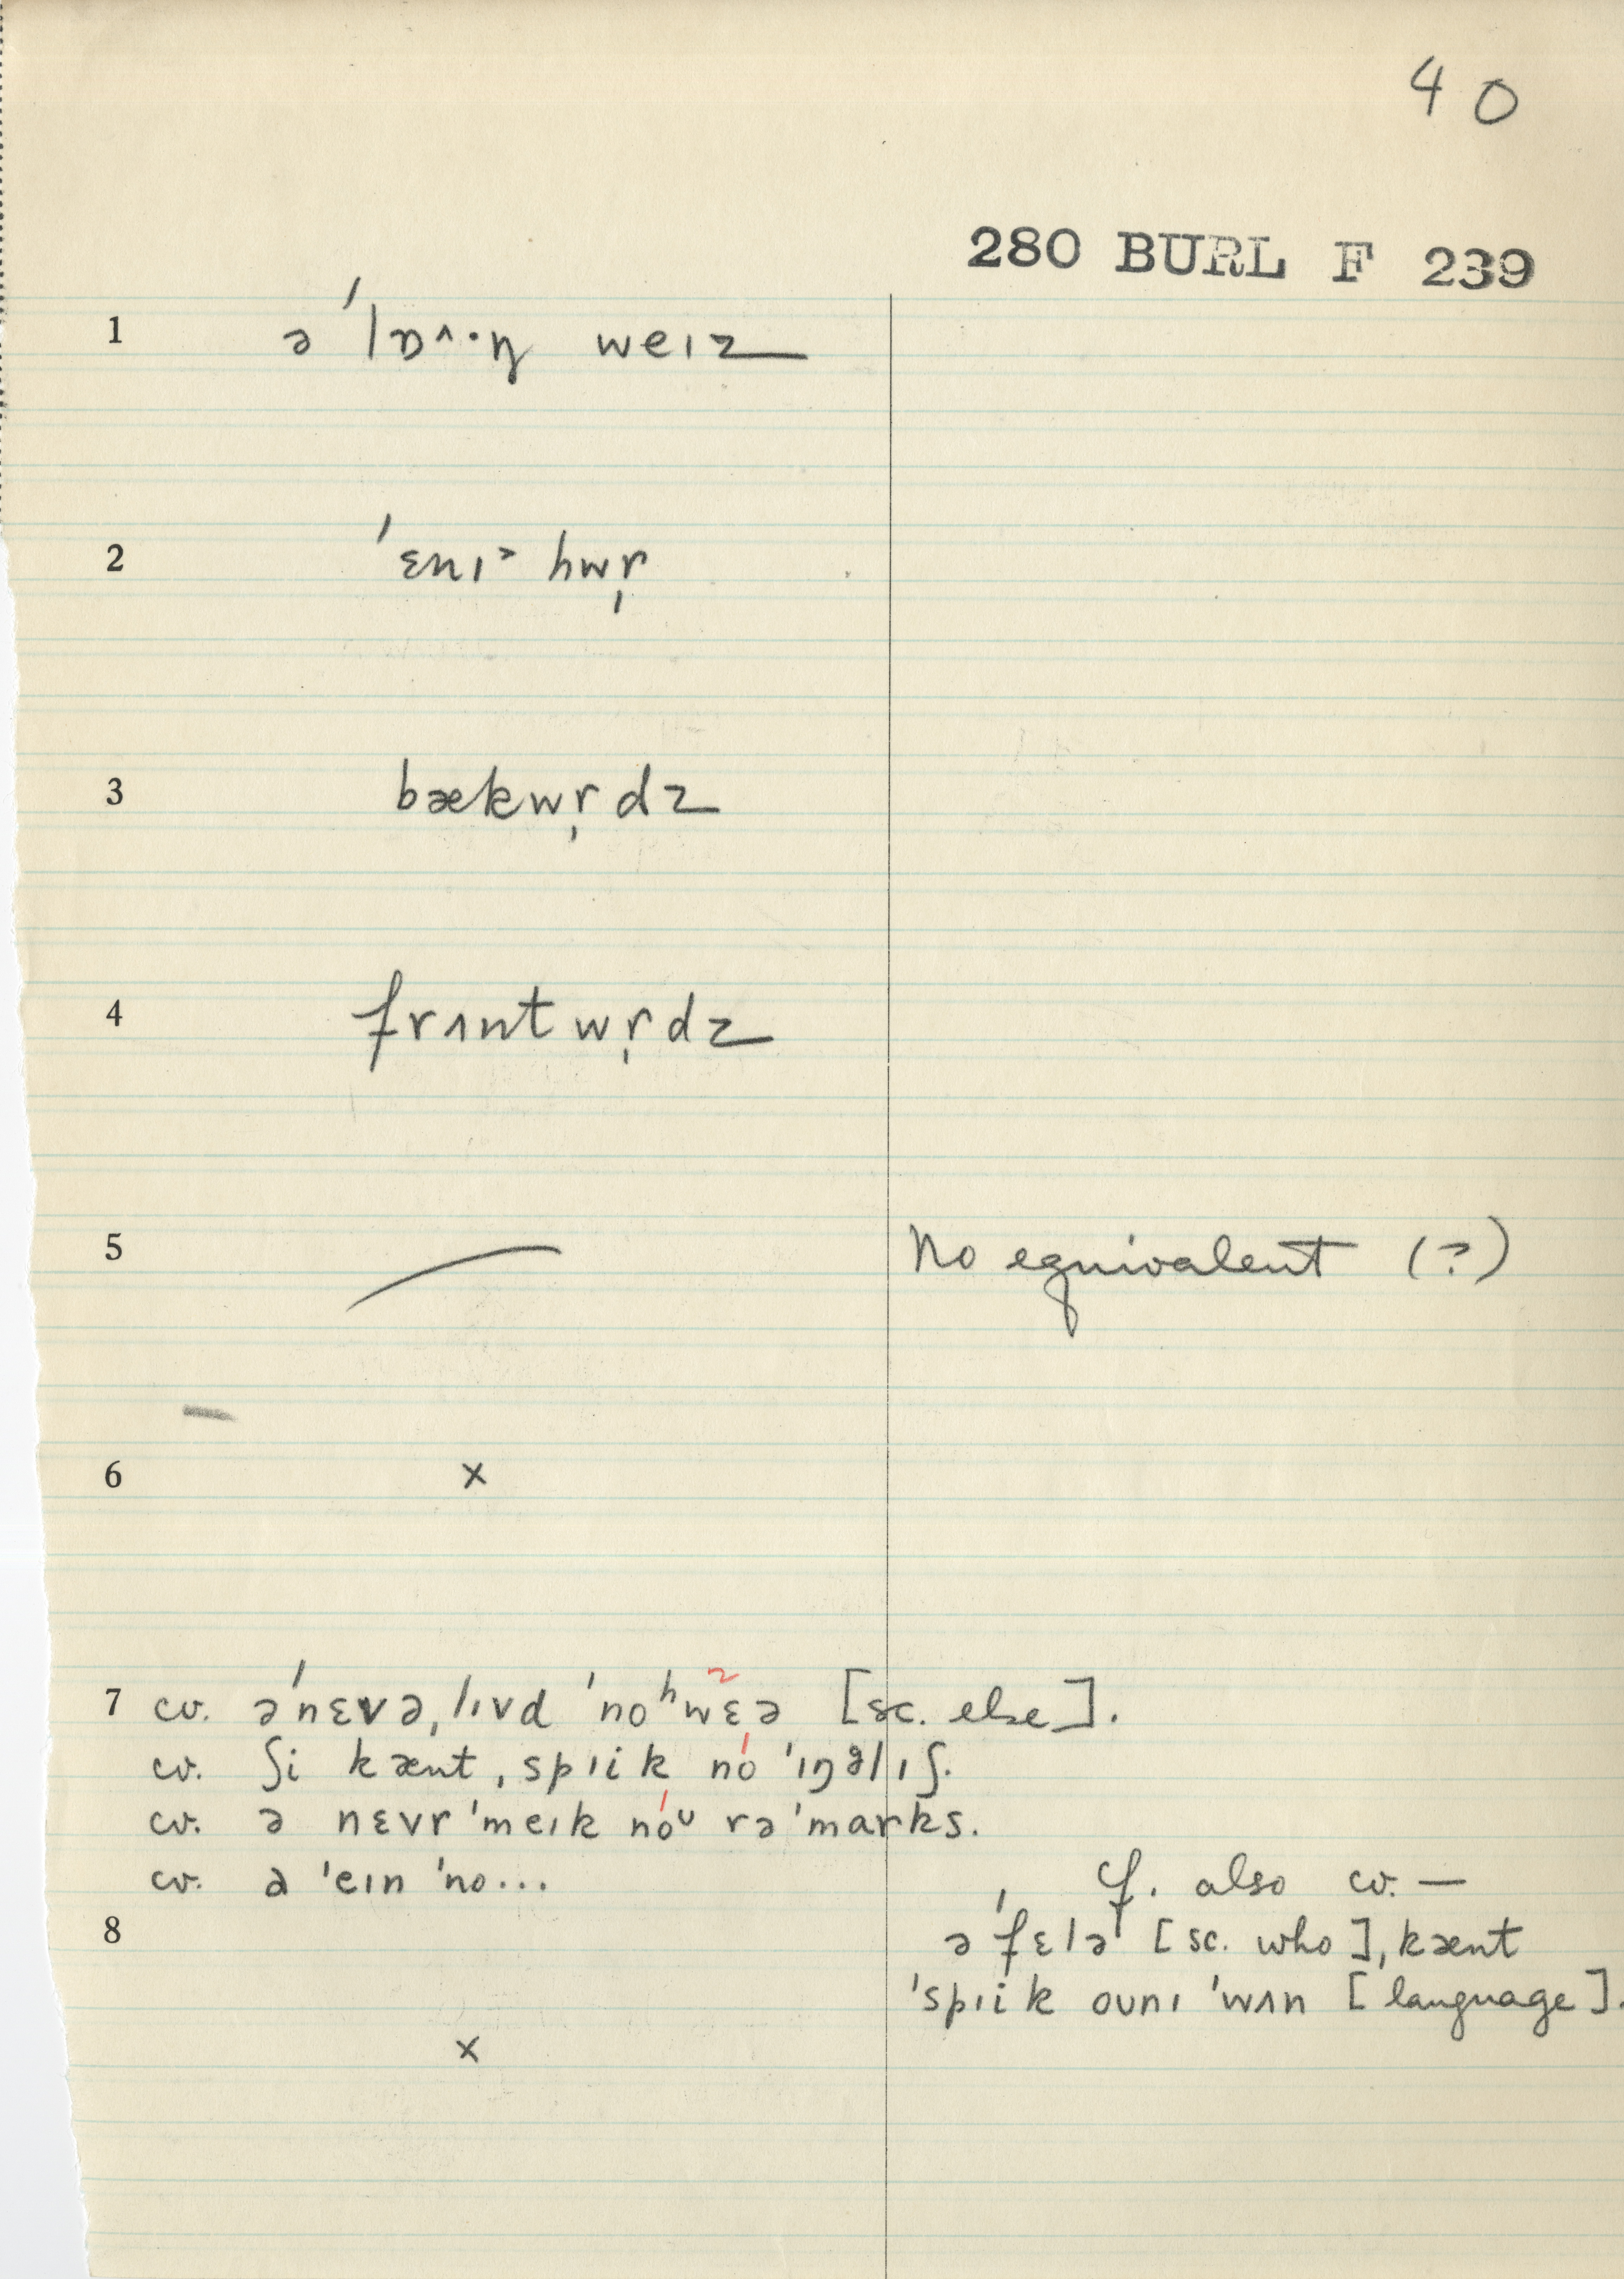 40
280 BURL F 239
1 ə ˈlɒ^·ŋ weɪz
2 ˈɛnɪ˃ hwr̩
3 bækwr̩dz
4 frʌntwr̩dz
5 — No equivalent (?)
6 x
7 cv. əˈnɛvə ˌlɪvd ˈnoʰwɛə [sc. else].
cv. ʃi kænt ˌspɪik nó ˈɪŋᵊlɪʃ.
cv. ə nɛvr ˈmeɪk nóᵁ rəˈmarks.
cv. ə ˈeɪn ˈno...
cf. also cv. —
8 ə ˈfɛlə [sc. who] ˌkænt
ˈspɪik oʊnɪ ˈwʌn [language].
x